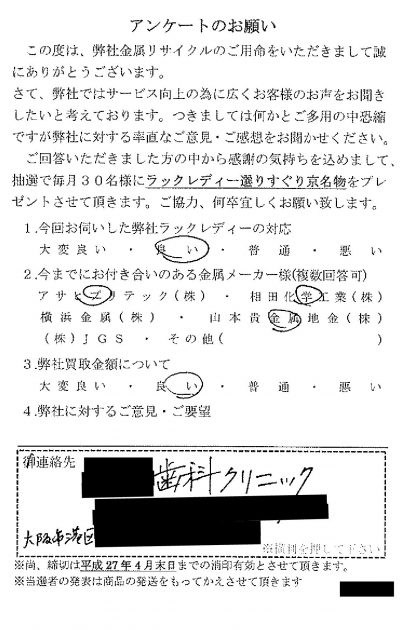 アンケートのお願い
この度は、弊社金属リサイクルのご用命をいただきまして誠
にありがとうございます。
さて、弊社ではサービス向上の為に広くお客様のお声をお聞き
したいと考えております。つきましては何かとご多用の中恐縮
ですが弊社に対する率直なご意見・ご感想をお聞かせください。
ご回答いただきました方の中から感謝の気持ちを込めまして、
抽選で毎月30名様にラックレディー選りすぐり京名物をプレ
ゼントさせて頂きます。ご協力、何卒宜しくお願い致します。
1.今回お伺いした弊社ラックレディーの対応
大変良い ・ 良い ・ 普通 ・ 悪い
2.今までにお付き合いのある金属メーカー様(複数回答可)
アサヒプリテック(株) ・ 相田化学工業(株)
横浜金属(株) ・ 山本貴金属地金(株)
(株)JGS ・ その他( )
3.弊社買取金額について
大変良い ・ 良い ・ 普通 ・ 悪い
4.弊社に対するご意見・ご要望
御連絡先
歯科クリニック
大阪市港区
※横判を押して下さい
※尚、締切は平成27年4月末日までの消印有効とさせて頂きます。
※当選者の発表は商品の発送をもってかえさせて頂きます